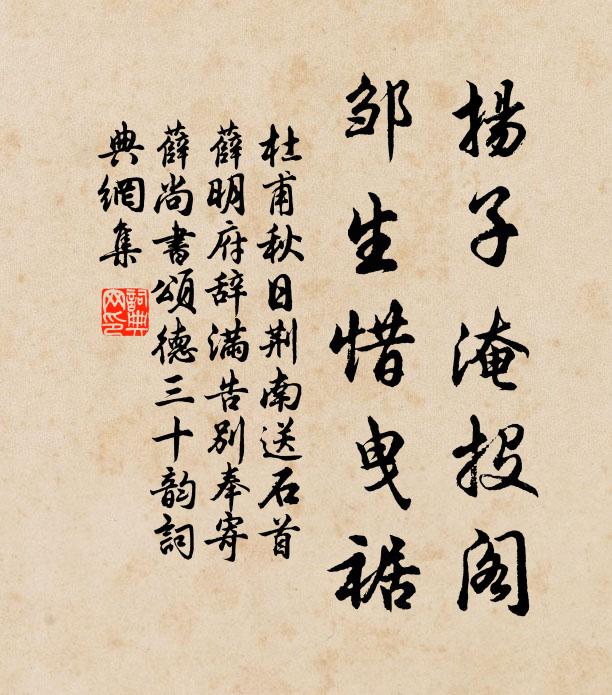 揚子淹投阁
邹生惜曳裾
杜甫秋日荆南送石首
薛明府辞满告别奉寄
薛尚書頌德三十韵詞
典網集
詞典
网印